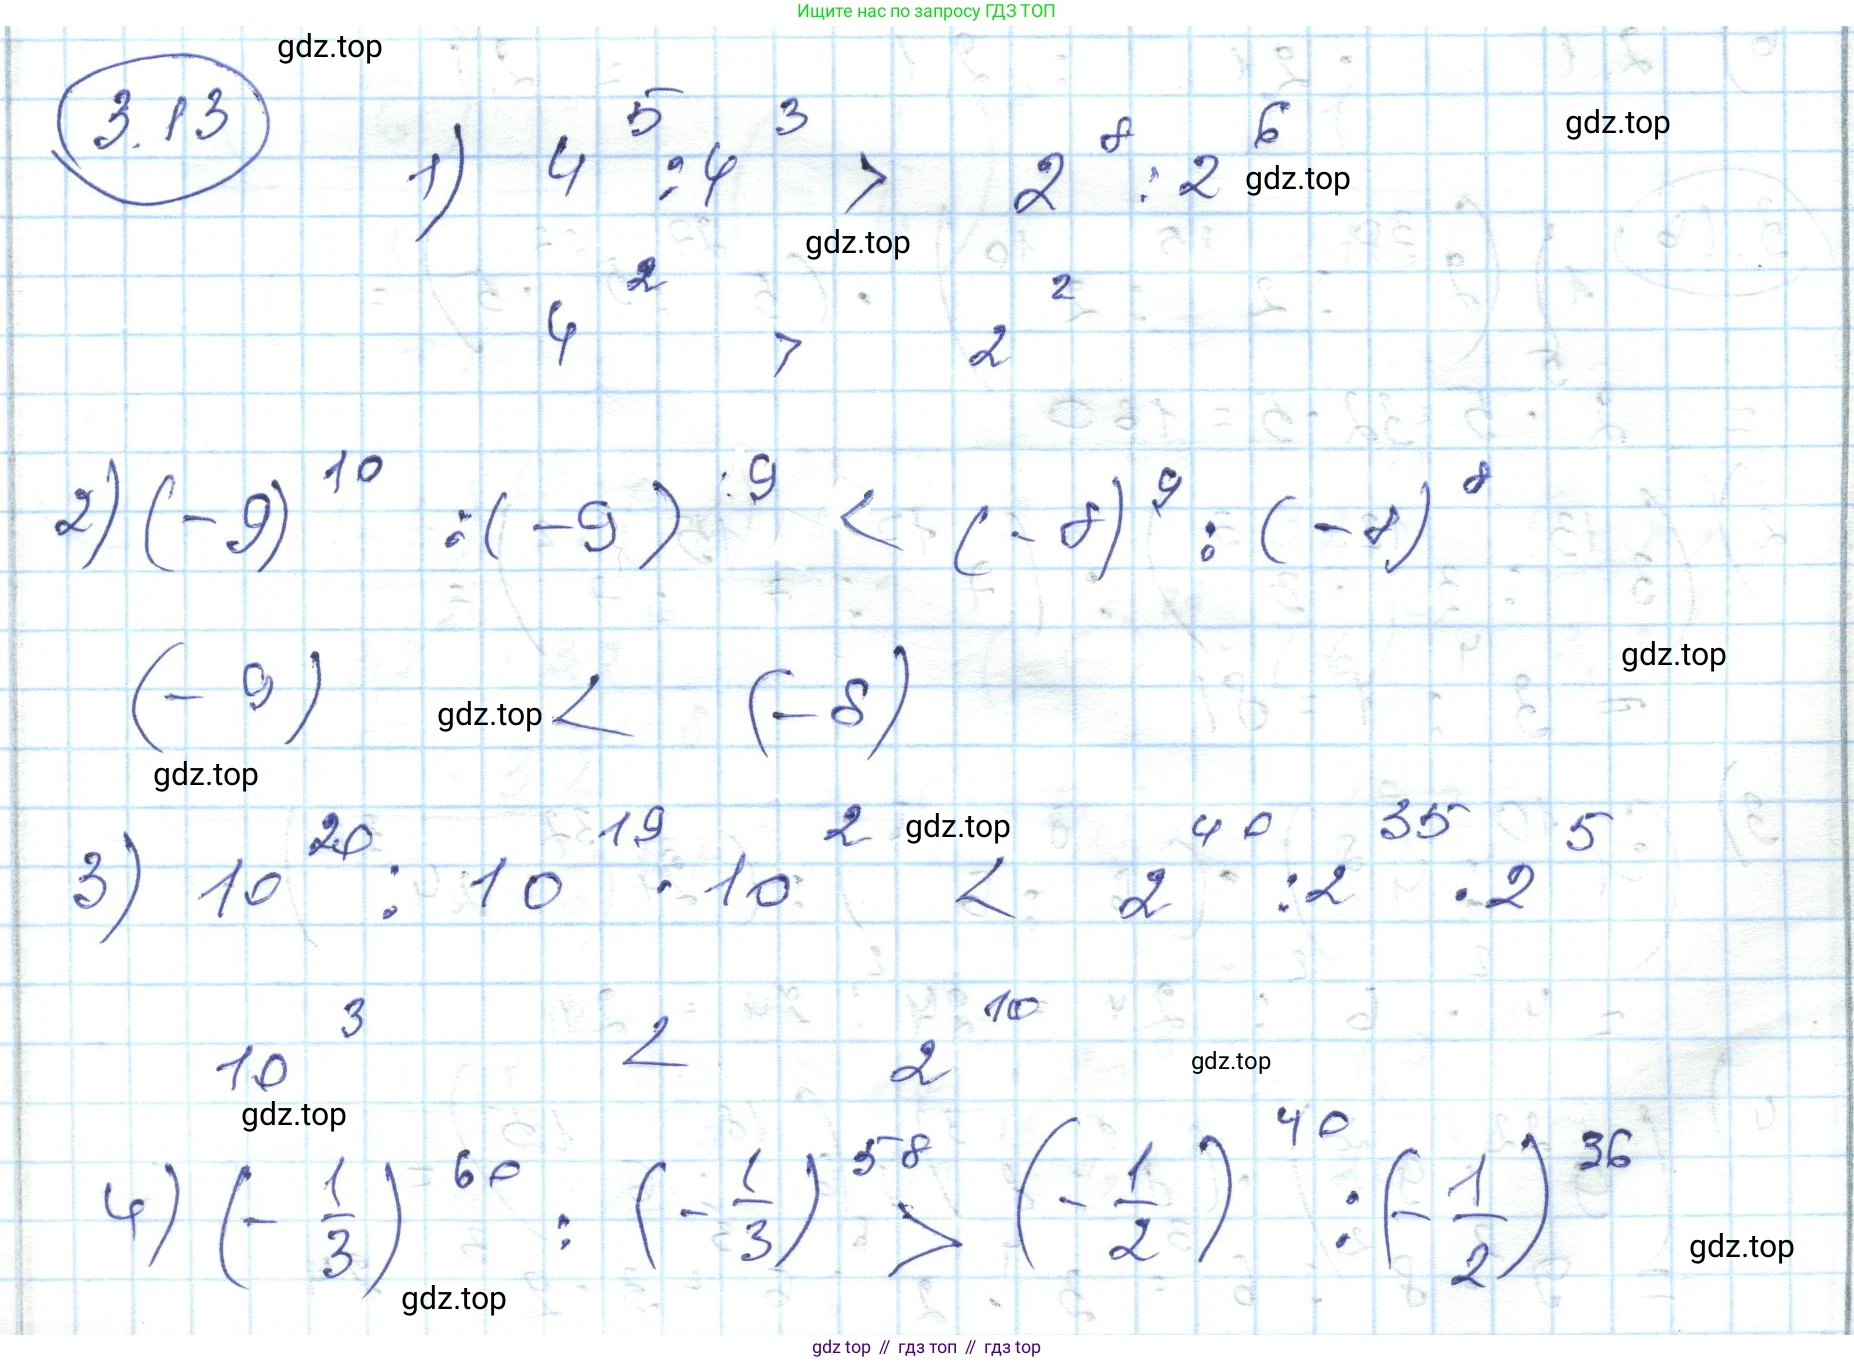 Ищите нас по запросу ГДЗ ТОП
gdz.top
3.13
1) 4⁵ : 4³ > 2⁸ : 2⁶
gdz.top
gdz.top
gdz.top
4² > 2²
2) (-9)¹⁰ : (-9)^:9 < (-8)⁹ : (-8)⁸
gdz.top
(-9) < (-8)
gdz.top
gdz.top
3) 10²⁰ : 10¹⁹ · 10² < 2⁴⁰ : 2³⁵ · 2⁵
gdz.top
10³ < 2¹⁰
gdz.top
gdz.top
4) (-1/3)⁶⁰ : (-1/3)⁵⁸ > (-1/2)⁴⁰ : (-1/2)³⁶
gdz.top
gdz.top
gdz top // гдз топ // гдз top